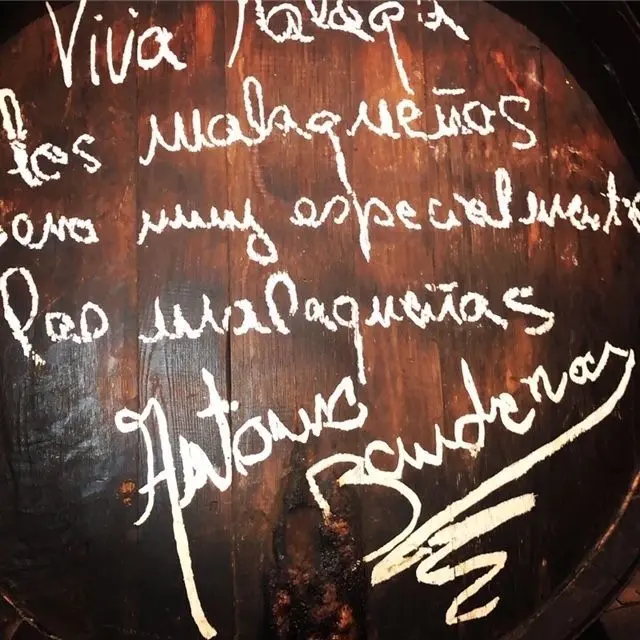 Viva Malaga
los malagueños
pero muy especialmente
las malagueñas
Antonio
Banderas